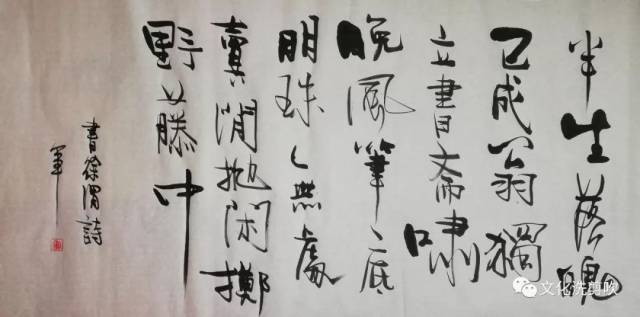 半生落魄
已成翁獨
立書斎嘯
晚風筆底
明珠無處
賣閒拋閑擲
野藤中
書徐渭詩
軍
文化洗剪吹